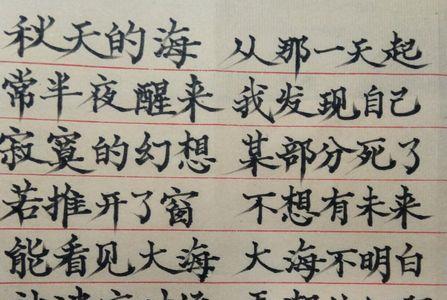 秋天的海 从那一天起
常半夜醒来 我发现自己
寂寞的幻想 某部分死了
若推开了窗 不想有未来
能看见大海 大海不明白